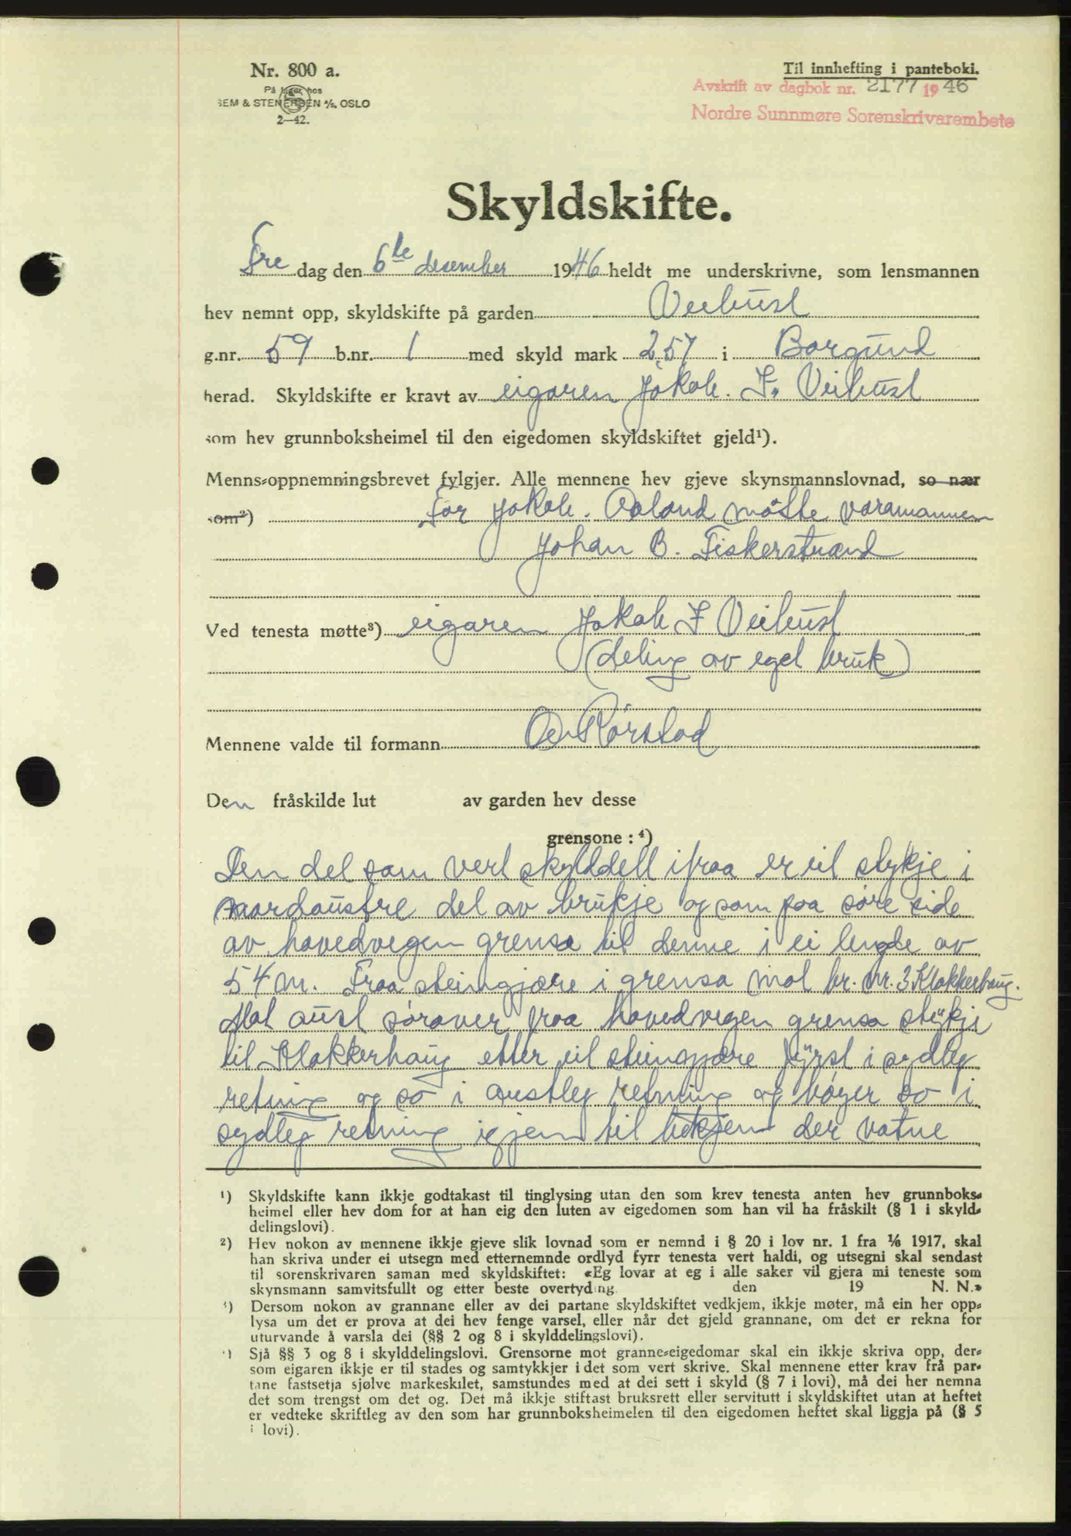 Nr. 800 a.
På lager hos
SEM & STENERSEN A/S, OSLO
2—42.
Til innhefting i panteboki.
Avskrift av dagbok nr. 2177 1946
Nordre Sunnmøre Sorenskrivarembete
Skyldskifte.
Fre dag den 6te desember 1946 heldt me underskrivne, som lensmannen
hev nemnt opp, skyldskifte på garden Veibust
g.nr. 59 b.nr. 1 med skyld mark 2,57 i Borgund
herad. Skyldskifte er kravt av eigaren Jakob. J. Veibust
som hev grunnboksheimel til den eigedomen skyldskiftet gjeld¹).
Menns-oppnemningsbrevet fylgjer. Alle mennene hev gjeve skynsmannslovnad, so nær
som²) For Jakob. Aaland møtte varamannen
Johan B. Fiskerstrand
Ved tenesta møtte³) eigaren Jakob J Veibust
(deling av eget bruk)
Mennene valde til formann O. Rørstad
Den fråskilde lut av garden hev desse
grensone : ⁴)
Den del som vert skylddelt ifraa er eit stykje i
nordaustre del av brukje og som paa søre side
av hovedvegen grensa til denne i ei lengde av
54 m. Fraa steingjære i grensa mot br. nr. 3 Klokkerhaug.
Mot aust sørover fraa hovedvegen grensa stykje
til Klokkerhaug etter eit steingjære fyrst i sydleg
retning og so i austleg retning og bøyer so i
sydleg retning igjen til bekjen der vatne
¹) Skyldskifte kann ikkje godtakast til tinglysing utan den som krev tenesta anten hev grunnboks-
heimel eller hev dom for at han eig den luten av eigedomen som han vil ha fråskilt (§ 1 i skyld-
delingslovi).
²) Hev nokon av mennene ikkje gjeve slik lovnad som er nemnd i § 20 i lov nr. 1 fra 1/6 1917, skal
han skriva under ei utsegn med etternemnde ordlyd fyrr tenesta vert haldi, og utsegni skal sendast
til sorenskrivaren saman med skyldskiftet: «Eg lovar at eg i alle saker vil gjera mi teneste som
skynsmann samvitsfullt og etter beste overtydng. den 19 N. N.»
³) Dersom nokon av grannane eller av dei partane skyldskiftet vedkjem, ikkje møter, må ein her opp-
lysa um det er prova at dei hev fenge varsel, eller når det gjeld grannane, om det er rekna for
uturvande å varsla dei (§§ 2 og 8 i skylddelingslovi).
⁴) Sjå §§ 3 og 8 i skylddelingslovi. Grensorne mot granne-eigedomar skal ein ikkje skriva opp, der-
som eigaren ikkje er til stades og samtykkjer i det som vert skrive. Skal mennene etter krav frå par-
tane fastsetja sjølve markeskilet, samstundes med at dei sett i skyld (§ 7 i lovi), må dei her nemna
det som trengst om det og. Det må ikkje stiftast bruksrett eller servitutt i skyldskiftet utan at heftet
er vedteke skriftleg av den som har grunnboksheimelen til den eigedomen heftet skal liggja på (§ 5
i lovi).